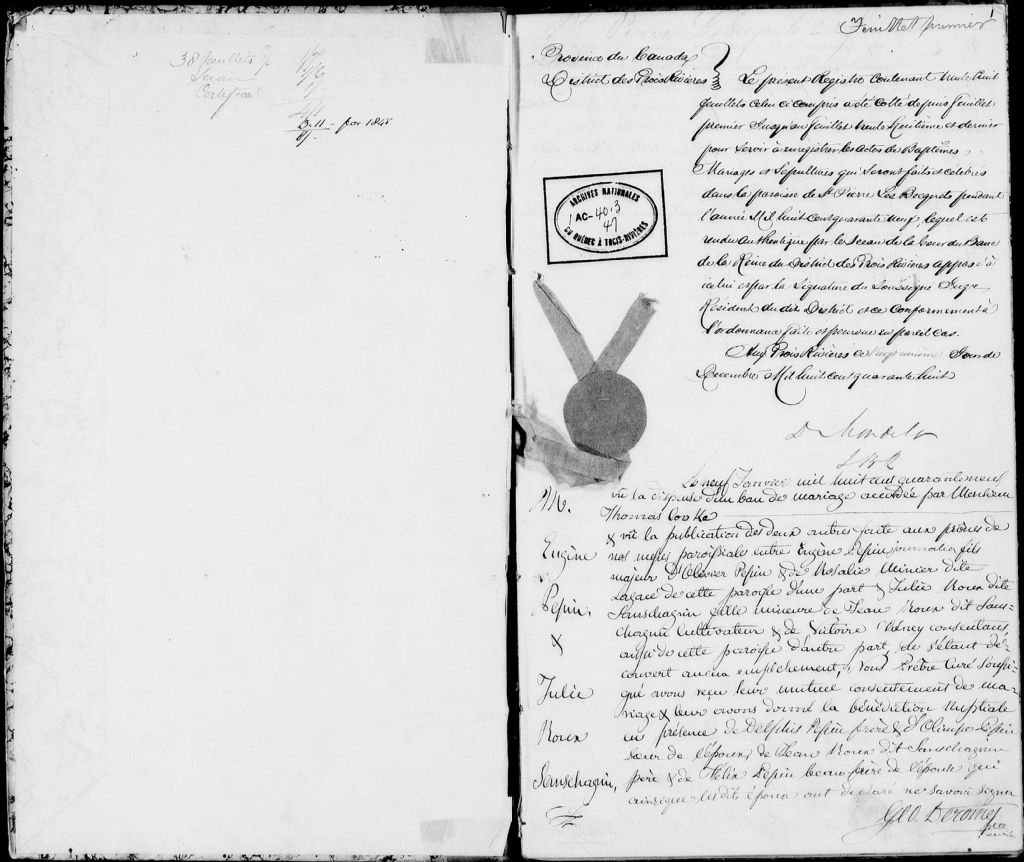 38 feuillets
Sceau
Certificat
3.11 - for 1848
Feuillet premier
1
Province du Canada
District des Trois Rivières
Le present Registre Contenant trente huit
feuillets celui ci compris a été cotté depuis feuillet
premier Jusqu'au feuillet trente huitième et dernier
pour Servir à enregistrer les actes de Baptêmes
Mariages et Sepultures qui Seront faits et célébrés
dans la paroisse de St Pierre Les Becquets pendant
l'année Mil huit Cent quarante neuf, lequel est
rendu authentique par le Sceau de la Cour du Banc
de la Reine du District des Trois Rivières apposé à
icelui et par la Signature du Soussigné Juge
Resident du dit District et ce Conformement à
l'ordonnance faite et pourvue en pareil cas.
Aux Trois Rivières ce Jour de
Decembre Mil huit cent quarante huit
ARCHIVES NATIONALES
AC-40-3
47
DU QUÉBEC À TROIS-RIVIÈRES
D Mondelet
Le neuf Janvier mil huit cent quarante neuf
vû la dispense d'un ban de mariage accordée par Monsieur
Thomas Cooke
& vû la publication des deux autres faite aux prônes de
nos messes paroissiales entre Eugène Pepin journalier fils
majeur d'Olivier Pepin & de Rosalie Minier dite
Lagacé de cette paroisse d'une part & Julie Roux dite
Sanschagrin fille mineure de Jean Roux dit Sans-
chagrin Cultivateur & de Victoire consentans
aussi de cette paroisse d'autre part, ne s'étant dé-
couvert aucun empêchement, Nous Prêtre Curé Soussi-
gné avons reçu leur mutuel consentement de ma-
riage & leur avons donné la bénédiction Nuptiale
en présence de Delphis Pepin frère & d'Olimpe Pepin
sœur de l'époux, de Jean Roux dit Sanschagrin
père & de Félix Pepin beau frère de l'épouse qui
ainsi que les dits époux ont déclaré ne savoir signer
Geo. Derome
Ptre
M.
Eugène
Pepin,
&
Julie
Roux
Sanschagrin,